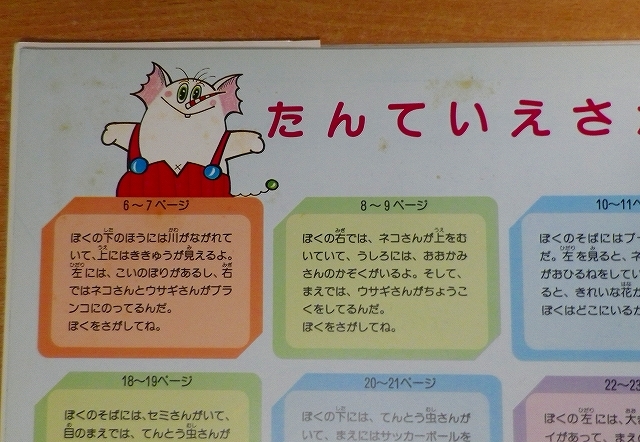 たんていえさ
6～7ページ
ぼくの下のほうには川がながれて
いて、上にはききゅうが見えるよ。
左には、こいのぼりがあるし、右
ではネコさんとウサギさんがブラ
ンコにのってるんだ。
ぼくをさがしてね。
8～9ページ
ぼくの右では、ネコさんが上をむ
いていて、うしろには、おおかみ
さんのかぞくがいるよ。そして、
まえでは、ウサギさんがちょうこ
くをしてるんだ。
ぼくをさがしてね。
10～11ペ
ぼくのそばにはプー
だ。左を見ると、ネ
がおひるねをしてい
ると、きれいな花が
ぼくはどこにいるか
18～19ページ
ぼくのそばには、セミさんがいて、
目のまえでは、てんとう虫さんが
20～21ページ
ぼくの下には、てんとう虫さんが
いて、まえにはサッカーボールを
22～23
ぼくの左には、大き
イがあって、まえ